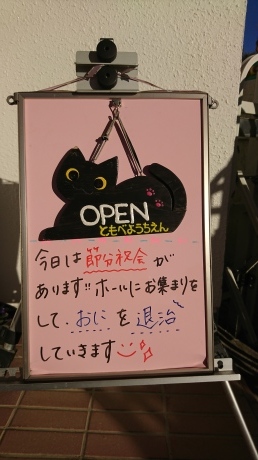 OPEN
ともべようちえん
今日は節分祝会が
あります!! ホールにお集まりを
して、おにを退治
していきます